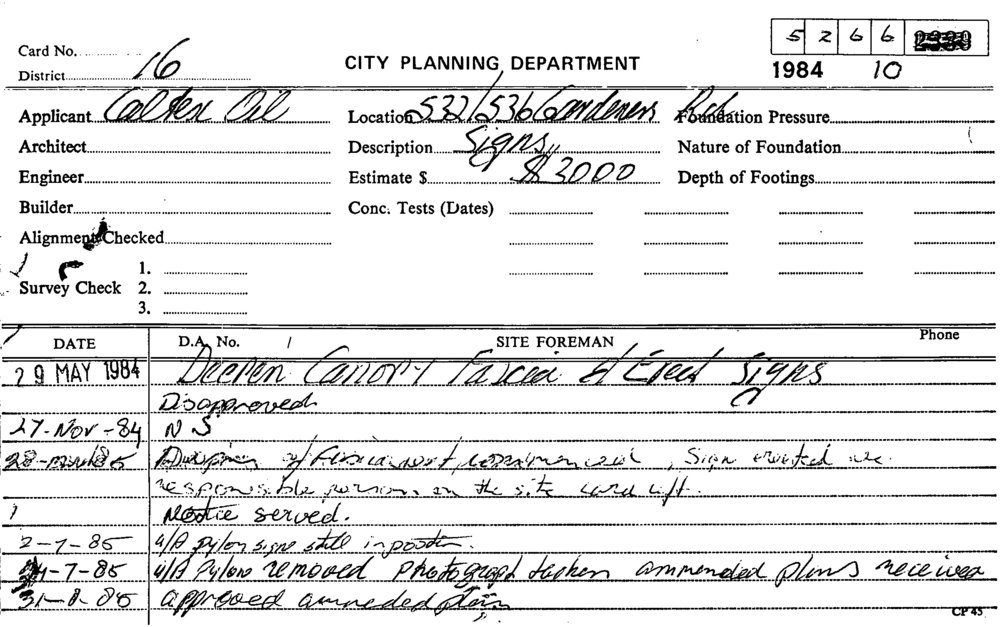 5 2 6 6
Card No.
1984 10
District 16
CITY PLANNING DEPARTMENT
Applicant Caltex Oil Location 532/536 Gardeners Rd Foundation Pressure
Architect Description Signs Nature of Foundation
Engineer Estimate $ $3000 Depth of Footings
Builder Conc. Tests (Dates)
Alignment Checked
1.
Survey Check 2.
3.
DATE D.A. No. SITE FOREMAN Phone
29 MAY 1984 Deepen Canopy Fascia & Erect Signs
Disapproved
27-Nov-84 N S
of Fascia not commenced, Sign erected
responsible person on the site card left.
Notice served.
2-7-85 U/A pylon sign still in position.
-7-85 U/A Pylon removed Photograph taken ammended plans received
31-8-85 approved plan
CP 45